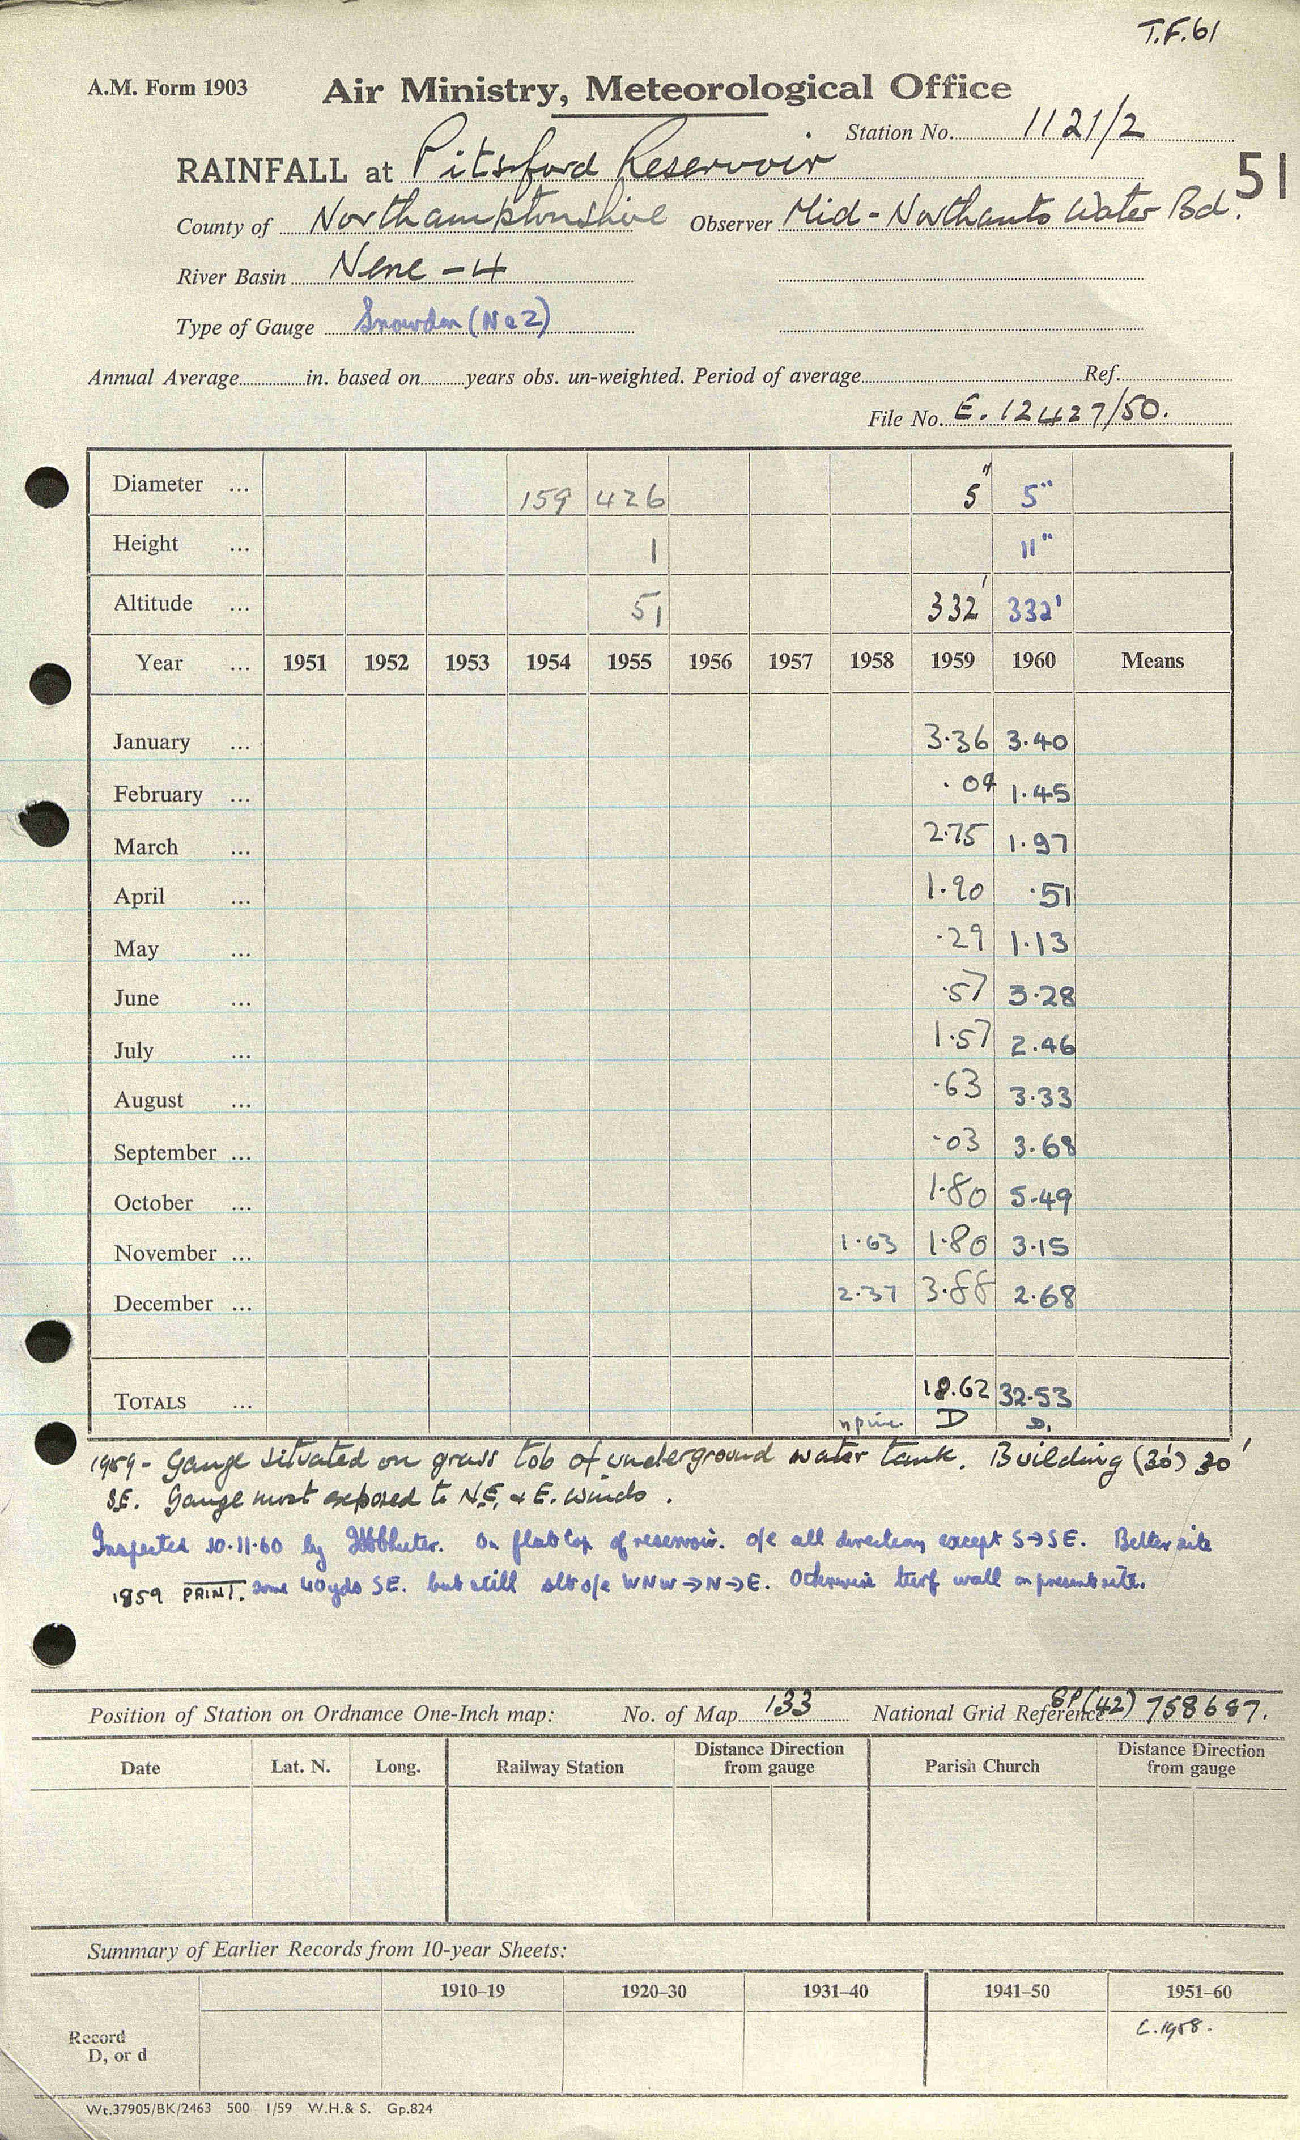 T.F.61
A.M. Form 1903 Air Ministry, Meteorological Office
Station No. 1121/2
RAINFALL at Pitsford Reservoir
51
County of Northamptonshire Observer Mid-Northants Water Bd.
River Basin Nene - 4
Type of Gauge Snowdon (Ne2)
Annual Average in. based on years obs. un-weighted. Period of average Ref.
File No. E. 12427/50.
Diameter ... 159 426 5" 5"
Height ... 1 11"
Altitude ... 51 332' 332'
Year ... 1951 1952 1953 1954 1955 1956 1957 1958 1959 1960 Means
January ... 3.36 3.40
February ... .04 1.45
March ... 2.75 1.97
April ... 1.90 .51
May ... .29 1.13
June ... .57 3.28
July ... 1.57 2.46
August ... .63 3.33
September ... .03 3.68
October ... 1.80 5.49
November ... 1.63 1.80 3.15
December ... 2.37 3.88 2.68
TOTALS ... 18.62 32.53
D D.
1959 - Gauge situated on grass top of underground water tank. Building (30') 30'
SE. Gauge most exposed to N.E. & E. winds.
Inspected 10.11.60 by. On flat top of reservoir. o/e all directions except S→SE. Better site
1959 PRINT. some 40yds SE. but still slt o/e WNW→N→E. Otherwise turf wall on present site.
Position of Station on Ordnance One-Inch map: No. of Map 133 National Grid Reference SP(42) 758687.
Date Lat. N. Long. Railway Station Distance Direction from gauge Parish Church Distance Direction from gauge
Summary of Earlier Records from 10-year Sheets:
1910–19 1920–30 1931–40 1941–50 1951–60
Record
D, or d
C.1958.
Wt.37905/BK/2463 500 1/59 W.H.& S. Gp.824